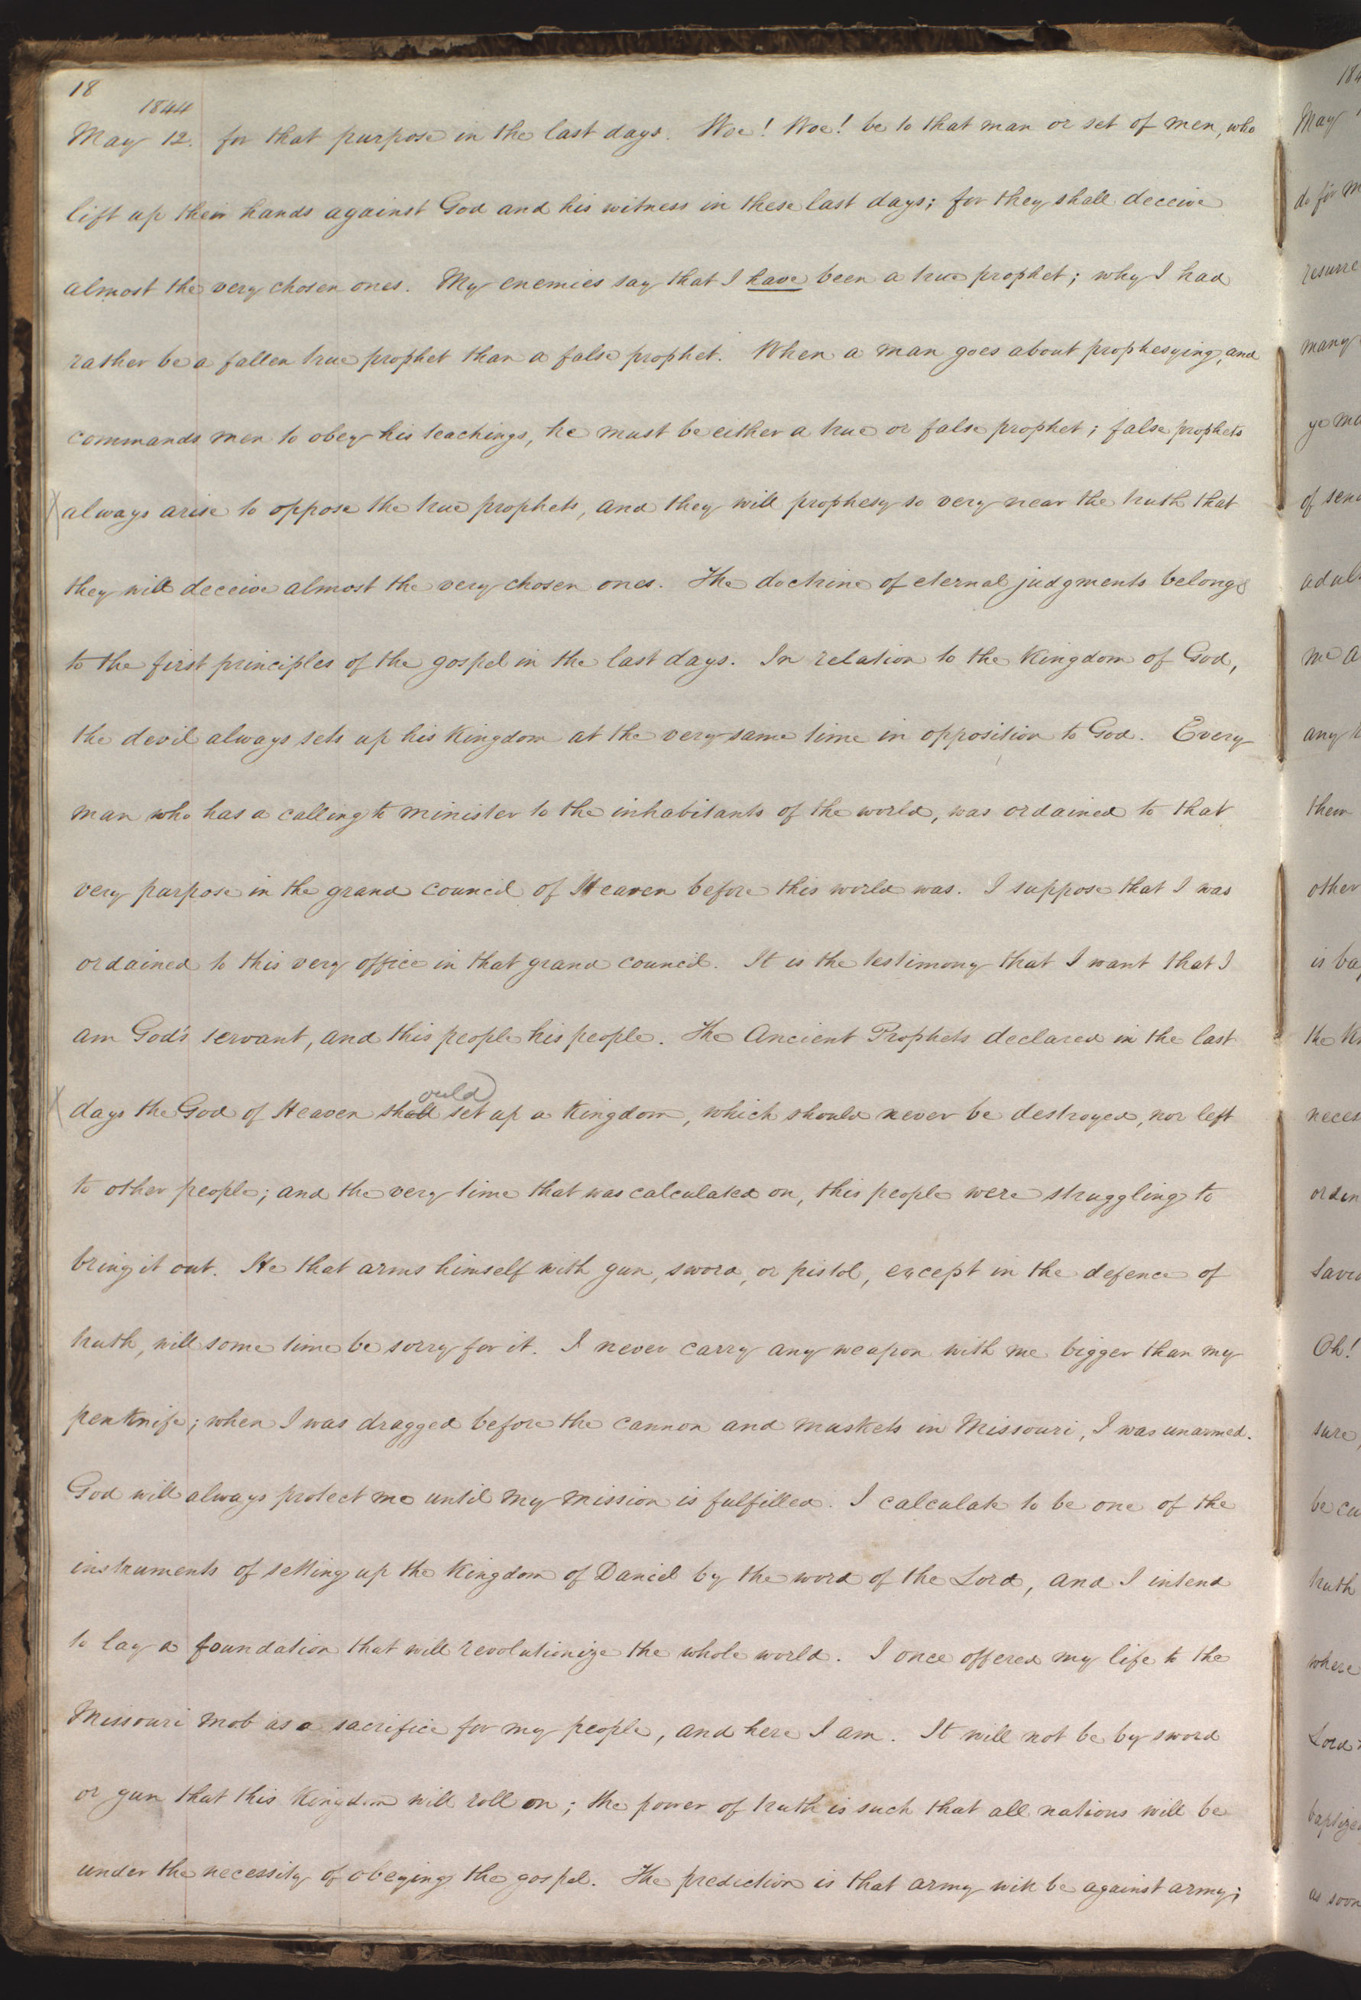 18
1844
May 12. for that purpose in the last days. Woe! Woe! be to that man or set of men, who
lift up their hands against God and his witness in these last days; for they shall deceive
almost the very chosen ones. My enemies say that I have been a true prophet; why I had
rather be a fallen true prophet than a false prophet. When a man goes about prophesying, and
commands men to obey his teachings, he must be either a true or false prophet; false prophets
always arise to oppose the true prophets, and they will prophesy so very near the truth that
they will deceive almost the very chosen ones. The doctrine of eternal judgments belongs
to the first principles of the gospel in the last days. In relation to the Kingdom of God,
the devil always sets up his Kingdom at the very same time in opposition to God. Every
man who has a calling to minister to the inhabitants of the world, was ordained to that
very purpose in the grand council of Heaven before this world was. I suppose that I was
ordained to this very office in that grand council. It is the testimony that I want that I
am God's servant, and this people his people. The Ancient Prophets declared in the last
ould
days the God of Heaven shall set up a Kingdom, which should never be destroyed, nor left
to other people; and the very time that was calculated on, this people were struggling to
bring it out. He that arms himself with gun, sword, or pistol, except in the defence of
truth, will some time be sorry for it. I never carry any weapon with me bigger than my
penknife; when I was dragged before the cannon and muskets in Missouri, I was unarmed.
God will always protect me until my mission is fulfilled. I calculate to be one of the
instruments of setting up the Kingdom of Daniel by the word of the Lord, and I intend
to lay a foundation that will revolutionize the whole world. I once offered my life to the
Missouri mob as a sacrifice for my people, and here I am. It will not be by sword
or gun that this Kingdom will roll on; the power of truth is such that all nations will be
under the necessity of obeying the gospel. The prediction is that army will be against army;
May
do for
many
of
me
any
them
other
is
the
Oh!
sure,
truth
where
Lord
as soon